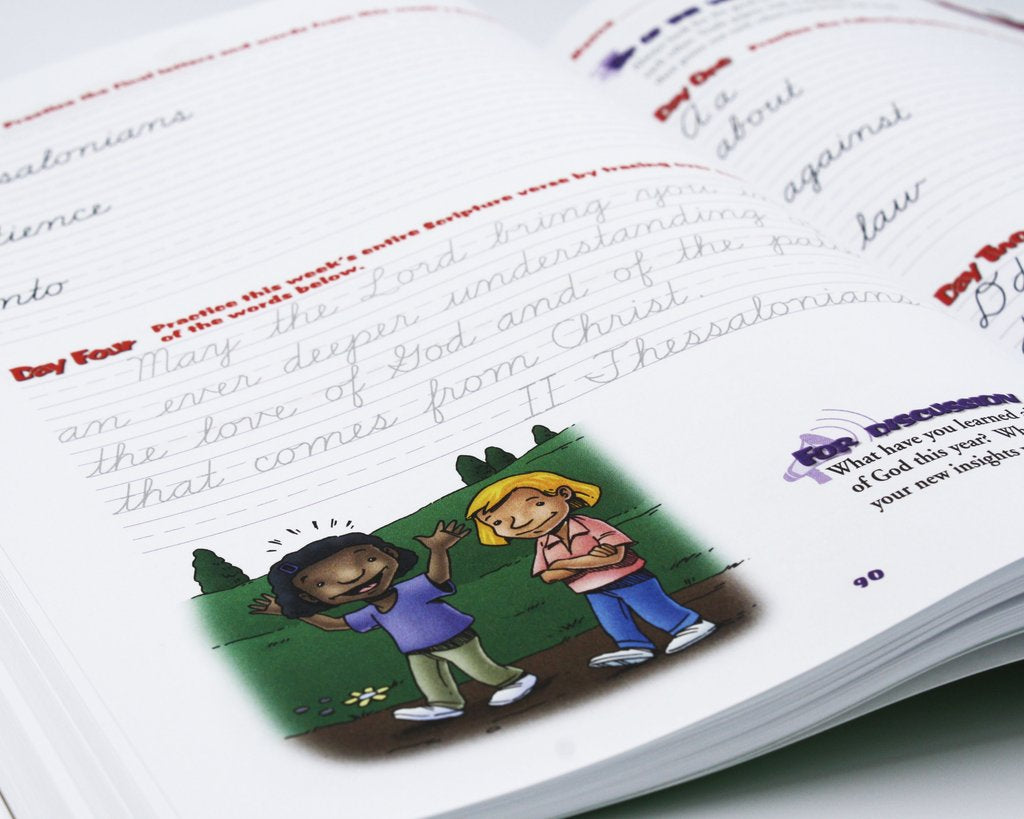 Practice the final letters and words from this week's
salonians
tience
nto
Day Four
Practice this week's entire Scripture verse by tracing over
of the words below.
May the Lord bring you
an ever deeper understanding
the love of God and of the
that comes from Christ.
II Thessalonians
FOR DISCUSSION
What have you learned
of God this year?
your new insights
90
Day One
Practice the
A a
about
against
law
Day Two
D d